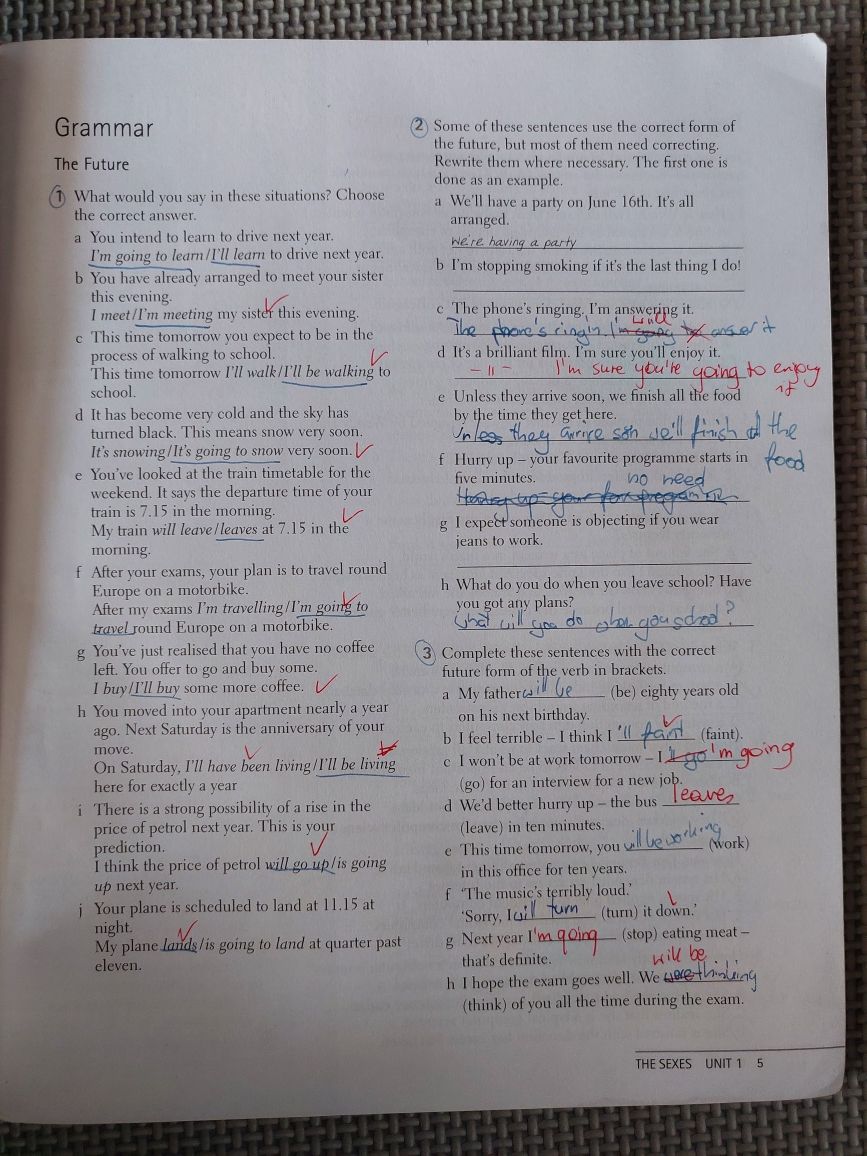 Grammar
The Future
1 What would you say in these situations? Choose
the correct answer.
a You intend to learn to drive next year.
I'm going to learn/I'll learn to drive next year.
b You have already arranged to meet your sister
this evening.
I meet/I'm meeting my sister this evening.
c This time tomorrow you expect to be in the
process of walking to school.
This time tomorrow I'll walk/I'll be walking to
school.
d It has become very cold and the sky has
turned black. This means snow very soon.
It's snowing/It's going to snow very soon.
e You've looked at the train timetable for the
weekend. It says the departure time of your
train is 7.15 in the morning.
My train will leave/leaves at 7.15 in the
morning.
f After your exams, your plan is to travel round
Europe on a motorbike.
After my exams I'm travelling/I'm going to
travel round Europe on a motorbike.
g You've just realised that you have no coffee
left. You offer to go and buy some.
I buy/I'll buy some more coffee.
h You moved into your apartment nearly a year
ago. Next Saturday is the anniversary of your
move.
On Saturday, I'll have been living/I'll be living
here for exactly a year
i There is a strong possibility of a rise in the
price of petrol next year. This is your
prediction.
I think the price of petrol will go up/is going
up next year.
j Your plane is scheduled to land at 11.15 at
night.
My plane lands/is going to land at quarter past
eleven.
2 Some of these sentences use the correct form of
the future, but most of them need correcting.
Rewrite them where necessary. The first one is
done as an example.
a We'll have a party on June 16th. It's all
arranged.
We're having a party
b I'm stopping smoking if it's the last thing I do!
c The phone's ringing. I'm answering it.
will
The phone's ringin. I'm going to anser it
d It's a brilliant film. I'm sure you'll enjoy it.
- 11 - I'm sure you're going to enjoy
it
e Unless they arrive soon, we finish all the food
by the time they get here.
Unless they arrice son we'll finish all the
food
f Hurry up – your favourite programme starts in
five minutes. no need
g I expect someone is objecting if you wear
jeans to work.
h What do you do when you leave school? Have
you got any plans?
What will you do when you school?
3 Complete these sentences with the correct
future form of the verb in brackets.
a My father will be (be) eighty years old
on his next birthday.
b I feel terrible – I think I 'll faint (faint).
c I won't be at work tomorrow – I 'll go 'm going
(go) for an interview for a new job.
d We'd better hurry up – the bus leaves
(leave) in ten minutes.
e This time tomorrow, you will be working (work)
in this office for ten years.
f 'The music's terribly loud.'
'Sorry, I will turn (turn) it down.'
g Next year I 'm going (stop) eating meat –
that's definite.
will be
h I hope the exam goes well. We were thinking
(think) of you all the time during the exam.
THE SEXES UNIT 1 5